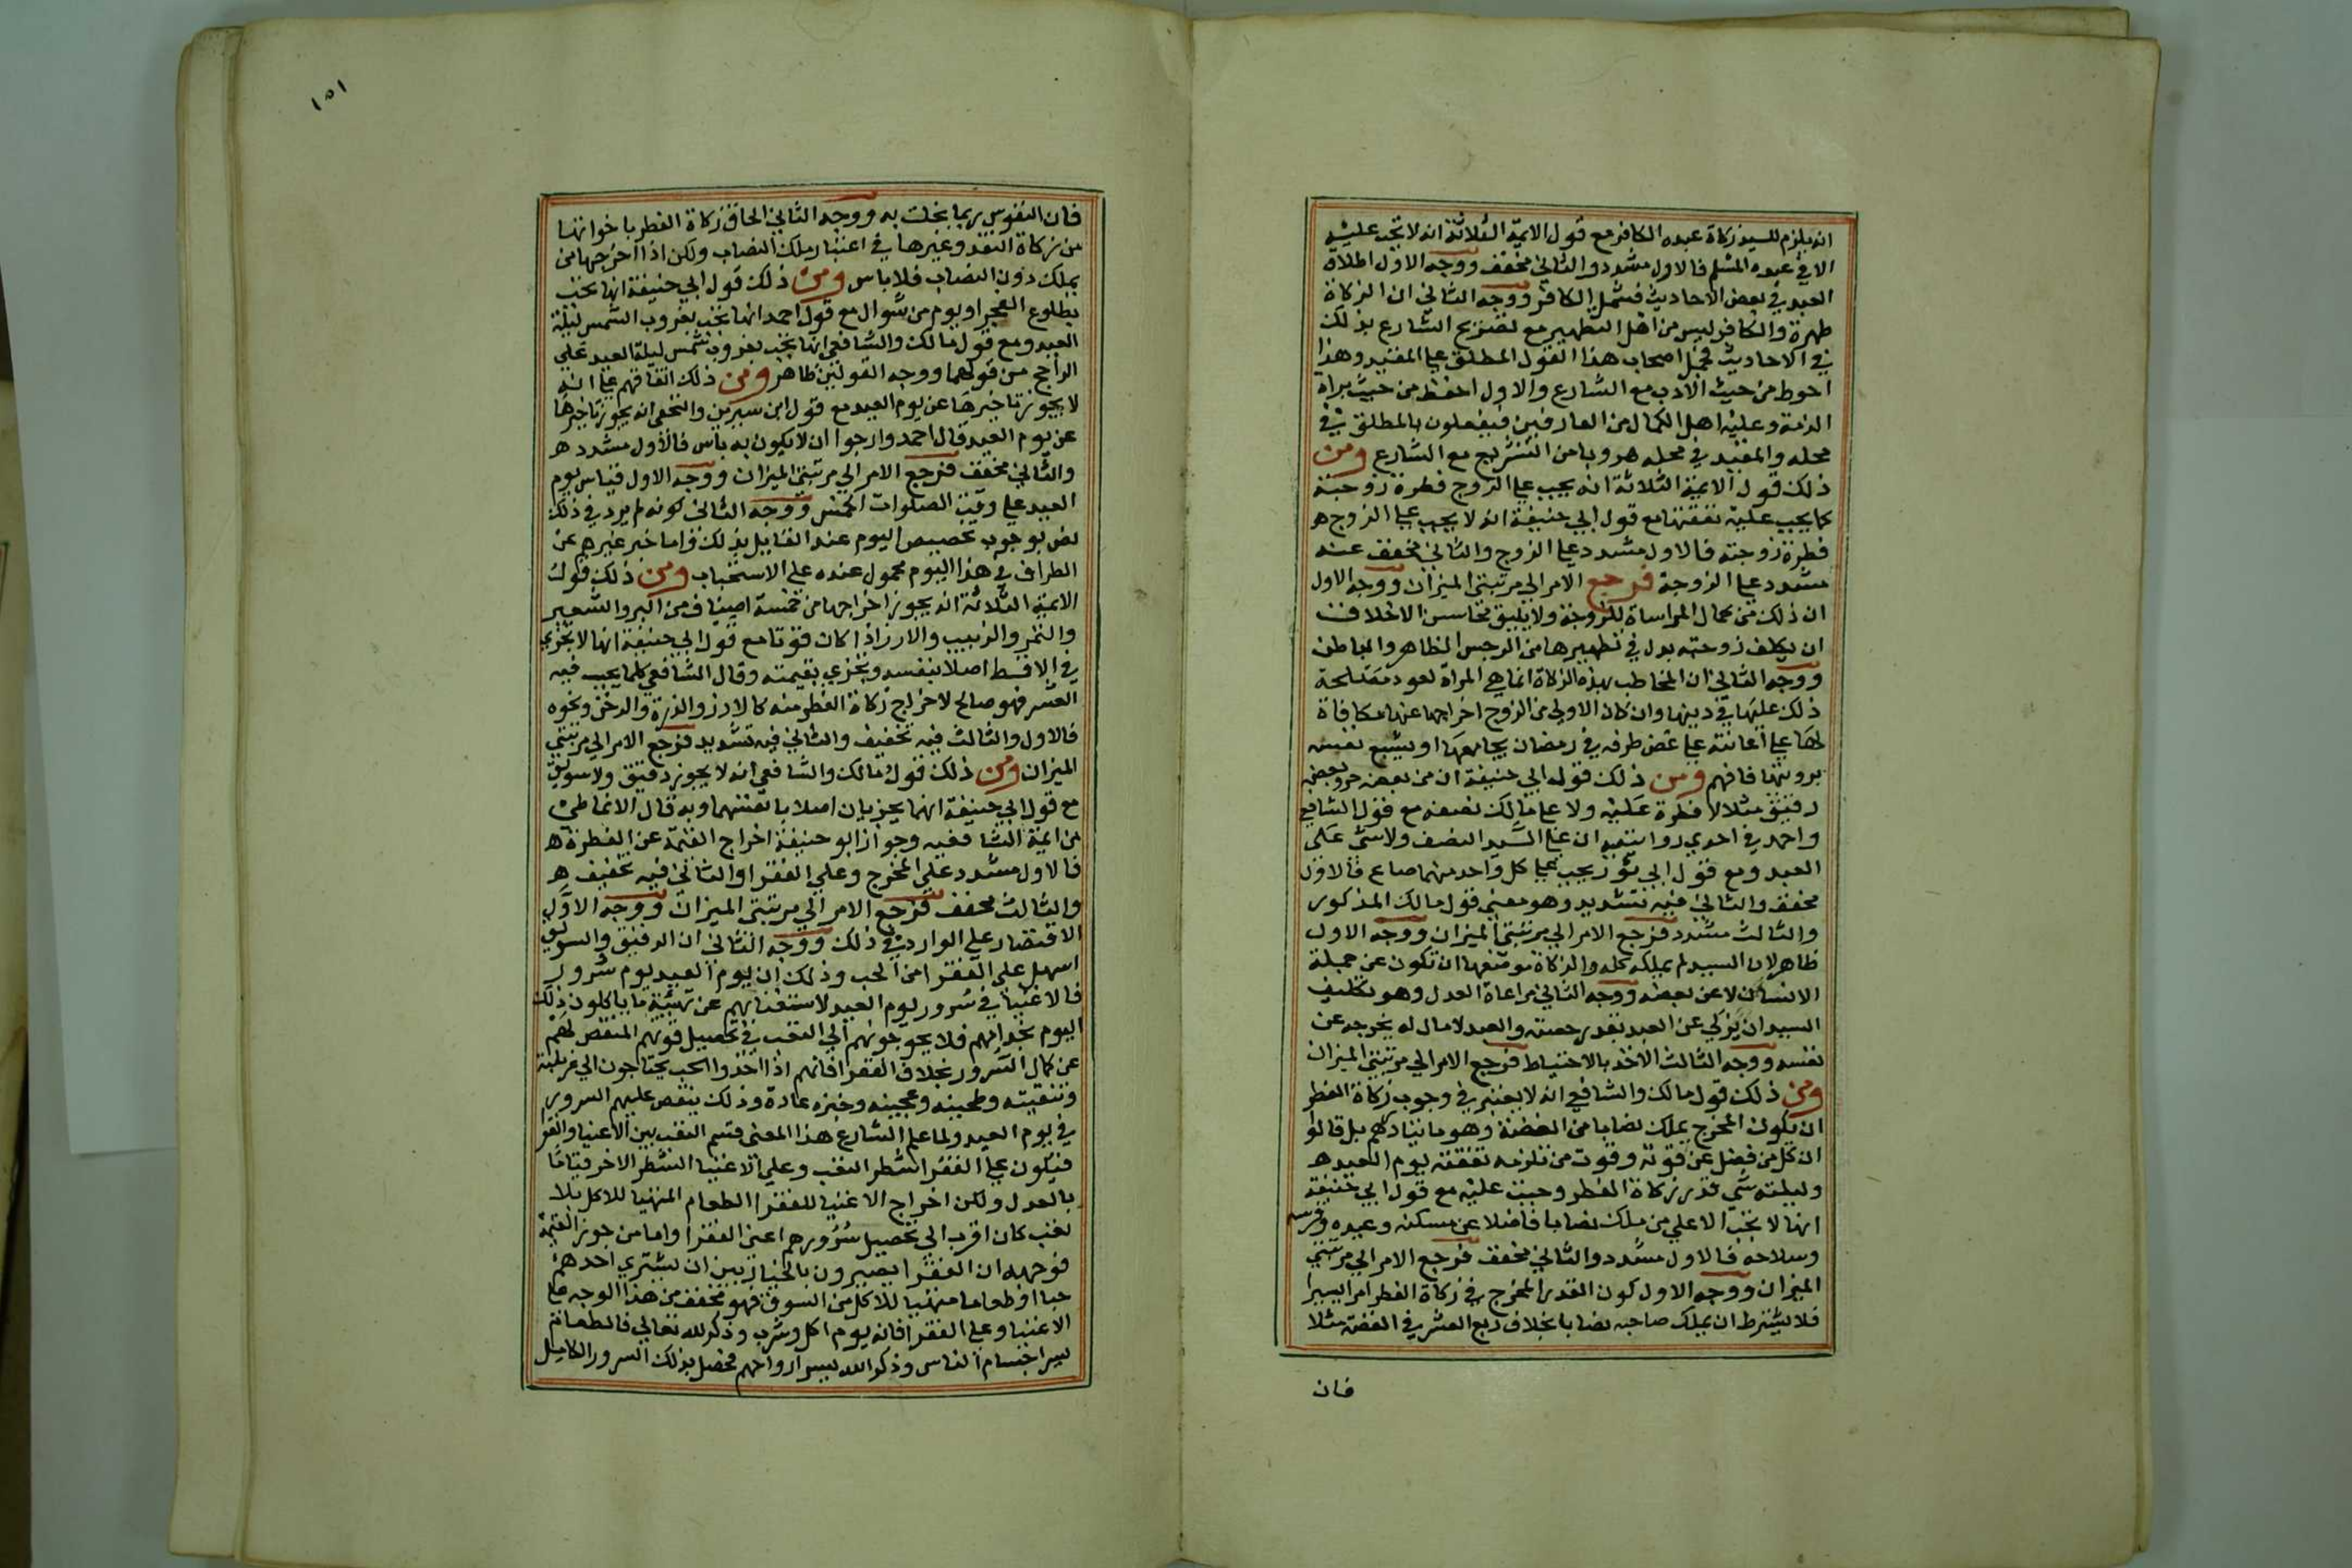 انه يلزم للسيد زكاة عبده الكافر مع قول الايمة الثلاثة انه لا تجب عليه
الا في عبده المسلم فالاول مشدد والثاني مخفف ووجه الاول اطلاق
العبد في بعض الاحاديث فشمل الكافر ووجه الثاني ان الزكاة
طهرة والكافر ليس من اهل التطهير مع تصريح الشارع بذلك
في الاحاديث فحمل اصحاب هذا القول المطلق علي المقيد وهذا
احوط من حيث الادب مع الشارع والاول احفظ من حيث براة
الذمة وعليه اهل الكمال من العارفين فيفعلون بالمطلق في
محله والمقيد في محله هروبا من التشريع مع الشارع ومن
ذلك قول الايمة الثلاثة انه يجب علي الزوج فطرة زوجته
كما يجب عليه نفقتها مع قول ابي حنيفة انه لا يجب علي الزوج ه
فطرة زوجته فالاول مشدد علي الزوج والثاني مخفف عنه
مشدد علي الزوجة فرجع الامر الي مرتبتي الميزان ووجه الاول
ان ذلك من كمال المواساة للزوجة ولا يليق بمحاسن الاخلاق
ان يكلف زوجته بدل في تطهيرها من الرجس الظاهر والباطن
ووجه الثاني ان المخاطب بهذه الزكاة انما هي المراة لعود مصلحة
ذلك عليها في دينها وان كان الاولي من الزوج اخراجها عنها مكافاة
لها علي اعانته علي غض طرفه في رمضان بجامعها او يشبع نفسه
برويتها فافهم ومن ذلك قول ابي حنيفة ان من بعضه حر وبعضه
رقيق مثلا لا فطرة عليه ولا علي مالك نصفه مع قول الشافعي
واحمد في احدي روايتيه ان علي السيد النصف ولا شي علي
العبد ومع قول ابي ثور يجب علي كل واحد منهما صاع فالاول
مخفف والثاني فيه تشديد وهو معني قول مالك المذكور
والثالث مشدد فرجع الامر الي مرتبتي الميزان ووجه الاول
ظاهر لان السيد لم يملكه كله والزكاة موضعها ان تكون عن جملة
الانسان لا عن بعضه ووجه الثاني مراعاة العدل وهو تكليف
السيد ان يزكي عن العبد بقدر حصته والعبد لا مال له يخرجه عن
نفسه ووجه الثالث الاخذ بالاحتياط فرجع الامر الي مرتبتي الميزان
ومن ذلك قول مالك والشافعي انه لا يعتبر في وجوب زكاة الفطر
ان يكون المخرج يملك نصابا من الفضة وهو مايتا درهم بل قالوا
ان كل من فضل عن قوته وقوت من تلزمه نفقته يوم العيد ه
وليلته شي قدر زكاة الفطر وجبت عليه مع قول ابي حنيفة
انها لا تجب الا علي من ملك نصابا فاضلا عن مسكنه وعبده وفرسه
وسلاحه فالاول مشدد والثاني مخفف فرجع الامر الي مرتبتي
الميزان ووجه الاول كون القدر المخرج في زكاة الفطر امرا يسيرا
فلا يشترط ان يملك صاحبه نصابا بخلاف ربع العشر في الفضة مثلا
فان
١٥١
فان النفوس ربما بخلت به ووجه الثاني الحاق زكاة الفطر باخواتها
من زكاة النقد وغيرها في اعتبار ملك النصاب ولكن اذا اخرجها من
يملك دون النصاب فلا باس ومن ذلك قول ابي حنيفة انها تجب
بطلوع الفجر اول يوم من شوال مع قول احمد انها تجب بغروب الشمس ليلة
العيد ومع قول مالك والشافعي انها تجب بغروب شمس ليلة العيد علي
الراجح من قولهما ووجه القولين ظاهر ومن ذلك اتفاقهم علي انه
لا يجوز تاخيرها عن يوم العيد مع قول ابن سيرين والنخعي انه يجوز تاخيرها
عن يوم العيد قال احمد وارجوا ان لا يكون به باس فالاول مشدد ه
والثاني مخفف فرجع الامر الي مرتبتي الميزان ووجه الاول قياس يوم
العيد علي وقت الصلوات الخمس ووجه الثاني كونه لم يرد في ذلك
نص بوجوب تخصيص اليوم عند القايل بذلك واما خبر غيرهم عن
الطواف في هذا اليوم محمول عنده علي الاستحباب ومن ذلك قول
الايمة الثلاثة انه يجوز اخراجها من خمسة اصناف من البر والشعير
والتمر والزبيب والارز اذا كان قوتا مع قول ابي حنيفة انها لا تجزي
في الاقط اصلا بنفسه وتجزي بقيمته وقال الشافعي كلما يجب فيه
العشر فهو صالح لاخراج زكاة الفطر منه كالارز والذرة والدخن ونحوه
فالاول والثالث فيه تخفيف والثاني فيه تشديد فرجع الامر الي مرتبتي
الميزان ومن ذلك قول مالك والشافعي انه لا يجوز دقيق ولا سويق
مع قول ابي حنيفة انهما يجزيان اصلا بانفسهما وبه قال الانماطي
من ايمة الشافعيه وجواز ابو حنيفة اخراج القيمة عن الفطرة ه
فالاول مشدد علي المخرج وعلي الفقرا والثاني فيه تخفيف ه
والثالث مخفف فرجع الامر الي مرتبتي الميزان ووجه الاول
الاقتصار علي الوارد في ذلك ووجه الثاني ان الدقيق والسويق
اسهل علي الفقرا من الحب وذلك ان يوم العيد يوم سرور
فالاغنيا في سرور يوم العيد لاستغنايهم عن تهيئة ما ياكلون ذلك
اليوم بخدامهم فلا يحوجونهم الي التعب في تحصيل قوتهم المنقص لهم
عن كمال السرور بخلاف الفقرا فانهم اذا اخذوا الحب يحتاجون الي غربلته
وتنقيته وطحينه وعجينه وخبزه عادة وذلك ينقص عليهم السرور
في يوم العيد ولما علم الشارع هذا المعني قسم التعب بين الاغنيا والفقرا
فيكون علي الفقرا شطر التعب وعلي الاغنيا الشطر الاخر قياما
بالعدل ولكن اخراج الاغنيا للفقرا الطعام المتهيا للاكل بلا
تعب كان اقرب الي تحصيل سرورهم اعني الفقرا واما من جوز القيمة
فوجهه ان الفقرا يصيرون بالخيار بين ان يشتري احدهم
حبا او طعاما متهيا للاكل من السوق فهو مخفف من هذا الوجه علي
الاغنيا وعلي الفقرا فانه يوم اكل وشرب وذكر لله تعالي فالطعام
يسر اجسام الناس وذكر الله يسر ارواحهم فحصل بذلك السرور الكامل